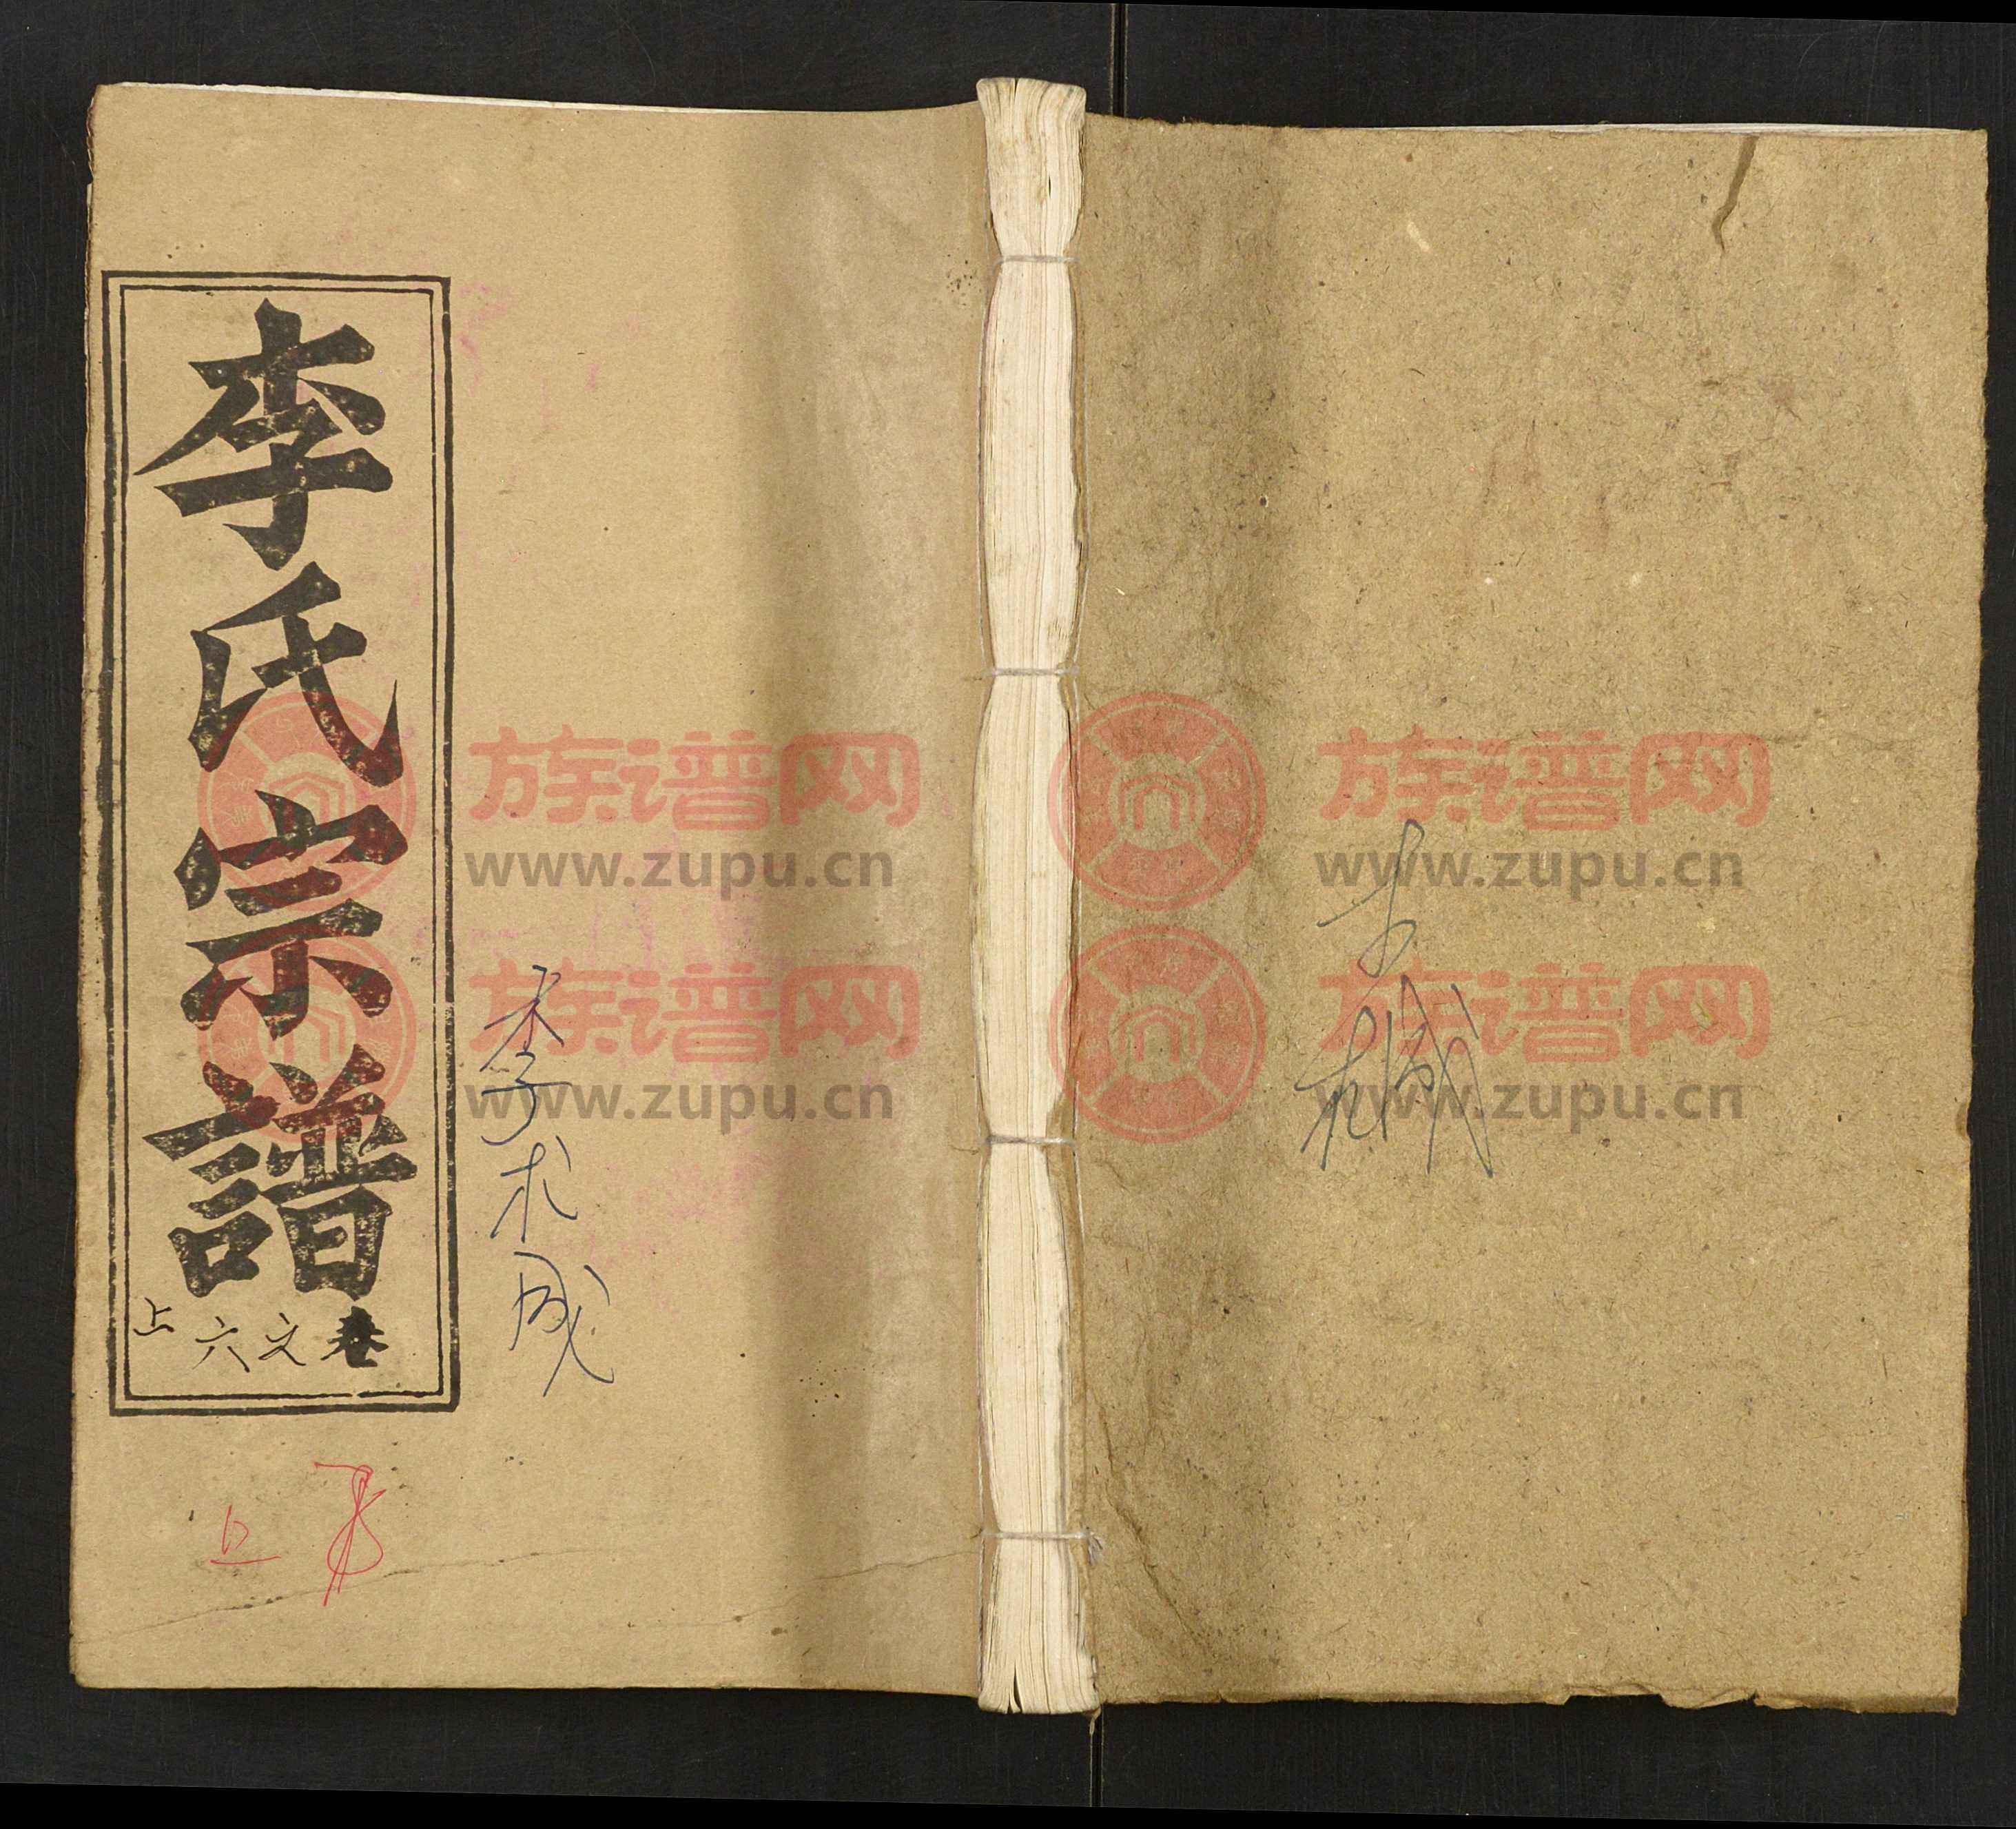 李氏宗譜
卷文六上
李术成
族谱网
www.zupu.cn
族谱网
www.zupu.cn
族谱网
www.zupu.cn
族谱网
www.zupu.cn